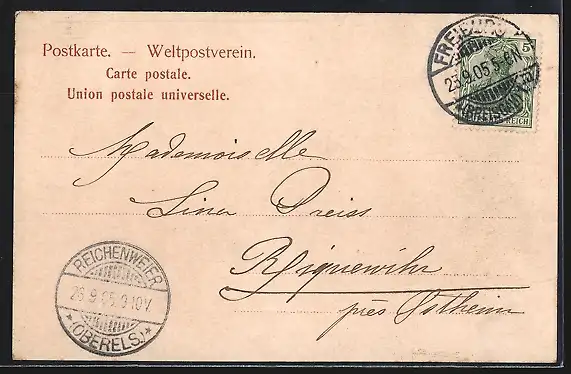 Postkarte. — Weltpostverein.
Carte postale.
Union postale universelle.
5
REICH
25.9.05.5-6N
Mademoiselle
Lina Preiss
Riquewihr
près Ostheim
REICHENWEIER
26.9.05.9-10V.
*(OBERELS.)*